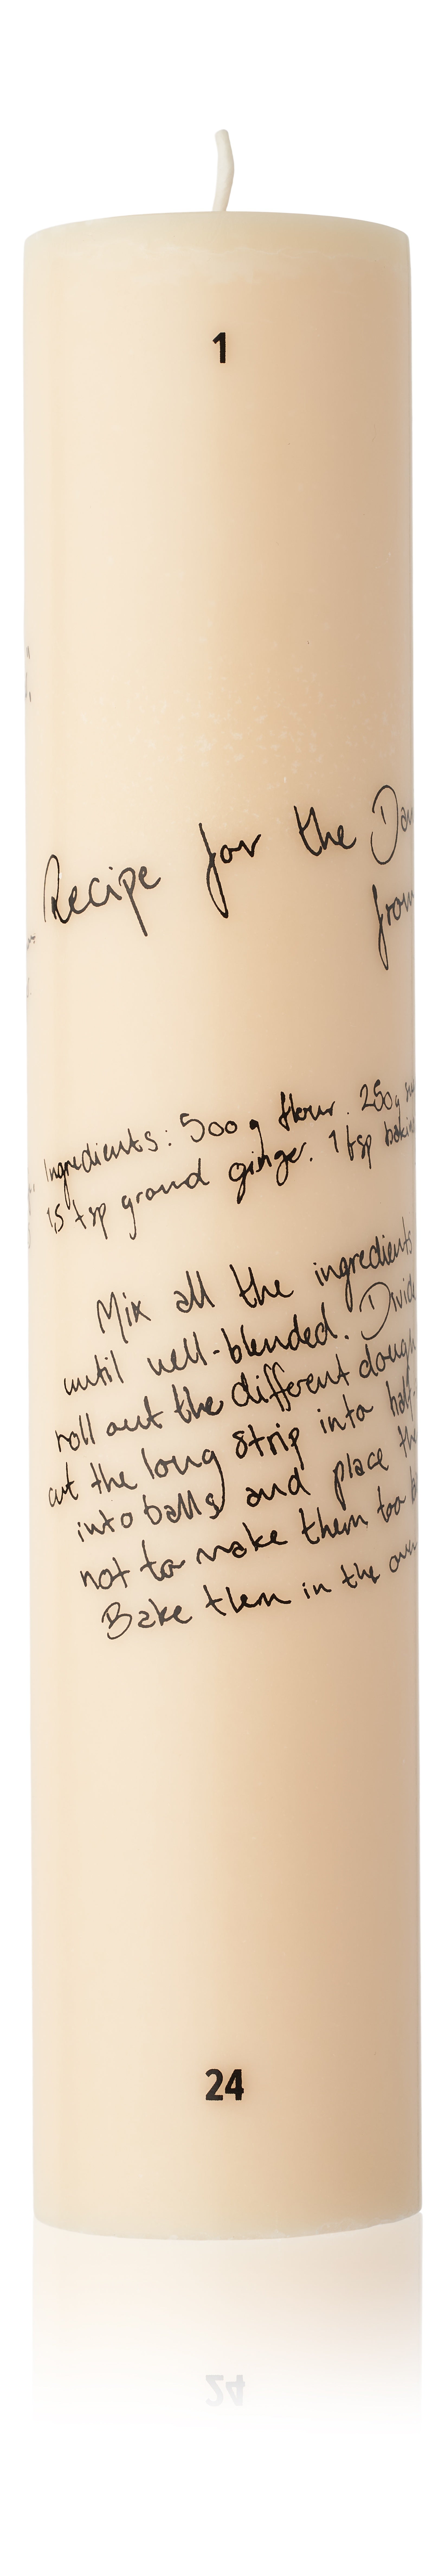 1
Recipe for the Dan
from
Ingredients: 500 g flour. 250g
15 tsp ground ginger. 1 tsp bakin
Mix all the ingredients
until well-blended. Divid
roll out the different dough
cut the long strip into half-
into balls and place the
not to make them too b
Bake them in the oven
24